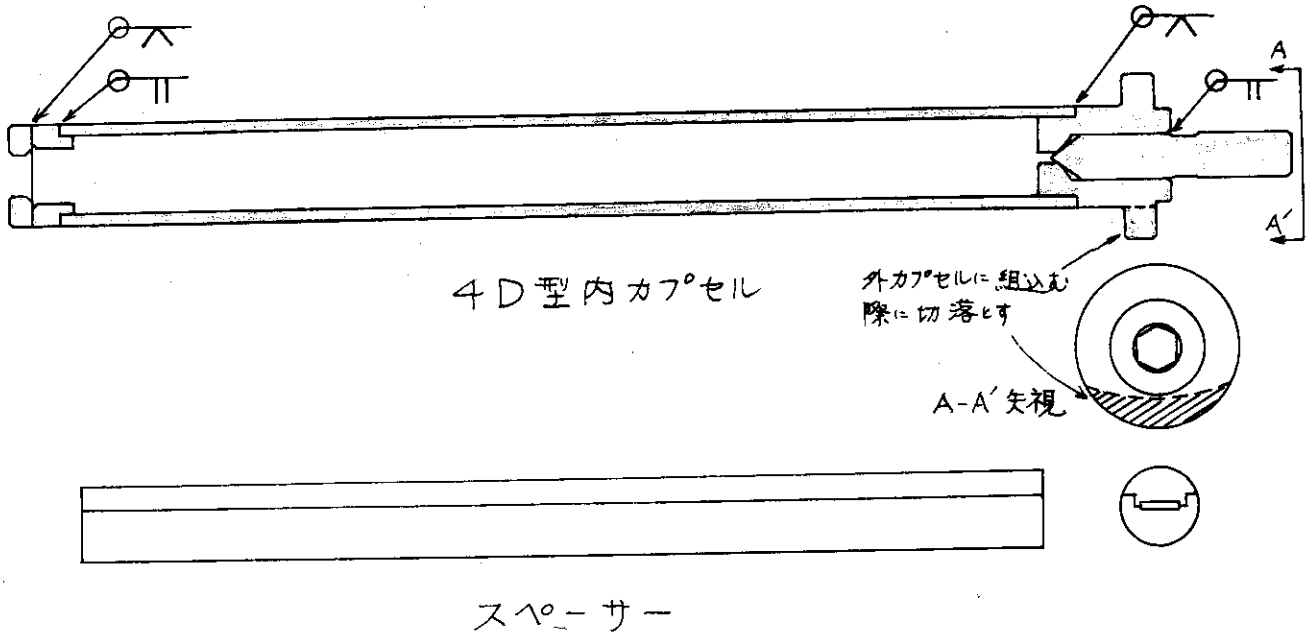 A
A′
4D型内カプセル
外カプセルに組込む
際に切落とす
A-A′矢視
スペーサー